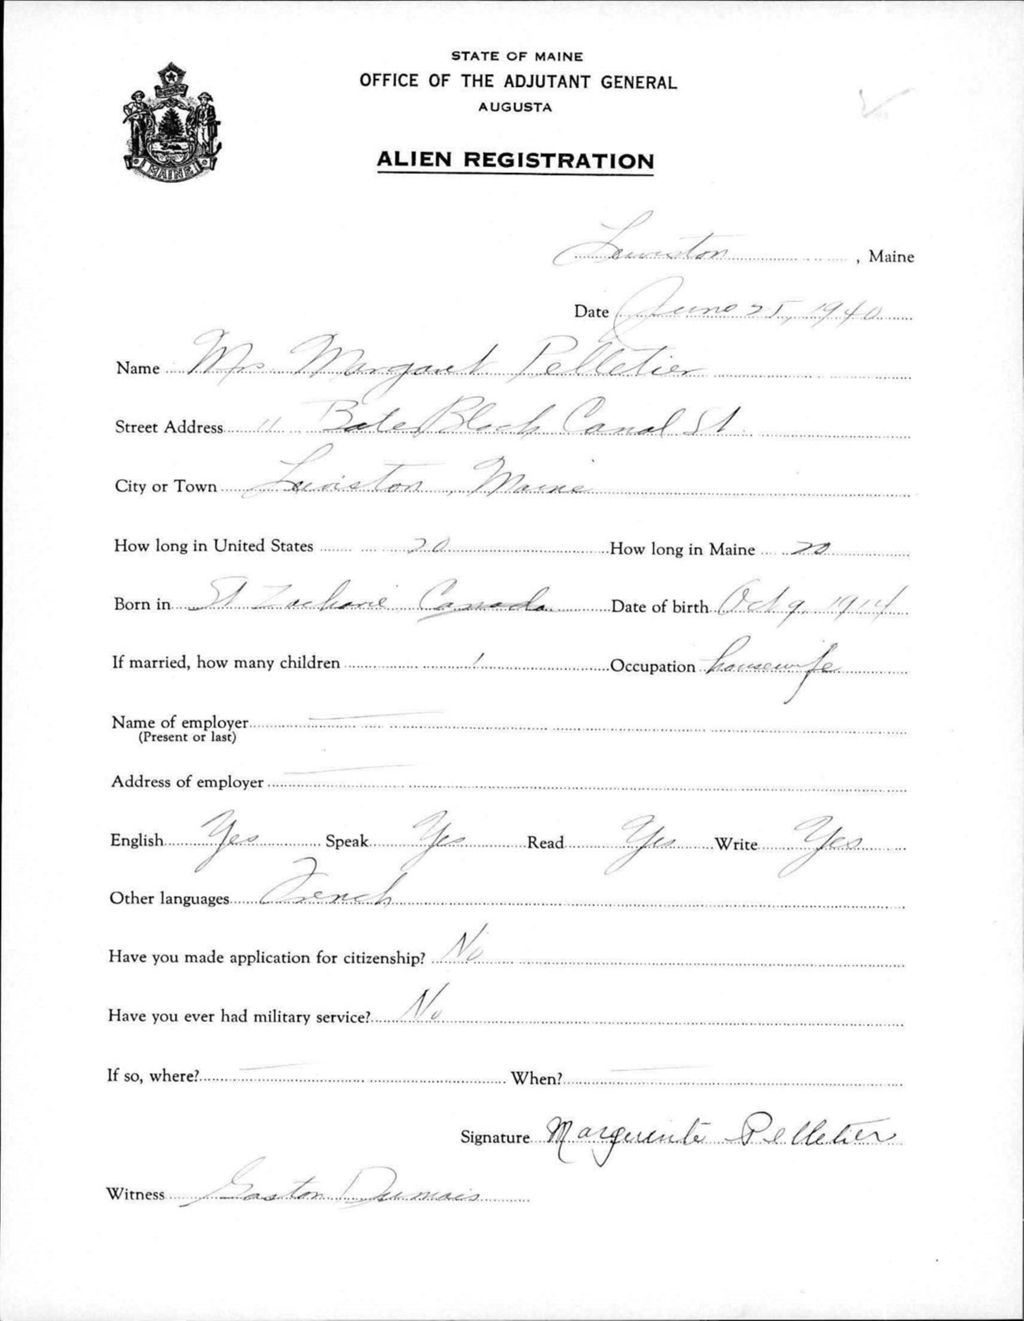 STATE OF MAINE
OFFICE OF THE ADJUTANT GENERAL
AUGUSTA
MAINE
ALIEN REGISTRATION
Lewiston, Maine
Date June 25, 1940
Name Mrs Margaret Pelletier
Street Address 11 Bates Block Canal St
City or Town Lewiston, Maine
How long in United States 20 How long in Maine 20
Born in St Zacharie Canada Date of birth Oct 9, 1914
If married, how many children 1 Occupation housewife
Name of employer —
(Present or last)
Address of employer —
English Yes Speak Yes Read Yes Write Yes
Other languages French
Have you made application for citizenship? No
Have you ever had military service? No
If so, where? — When? —
Signature Marguerite Pelletier
Witness Gaston Dumais